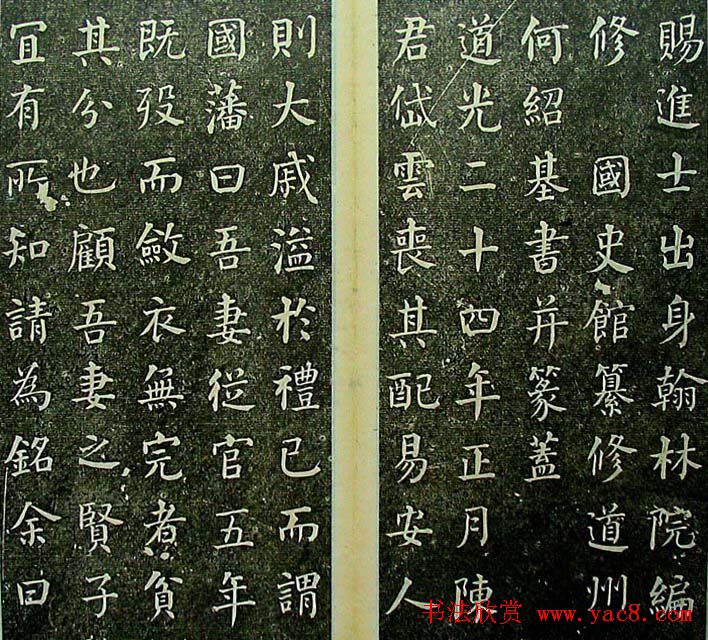 賜進士出身翰林院編
修 國史館纂修道州
何紹基書并篆蓋
道光二十四年正月陳
君岱雲喪其配易安人
則大戚溢於禮已而謂
國藩曰吾妻從官五年
既歿而斂衣無完者貧
其分也顧吾妻之賢子
冝有所知請為銘余曰
书法欣赏 www.yac8.com